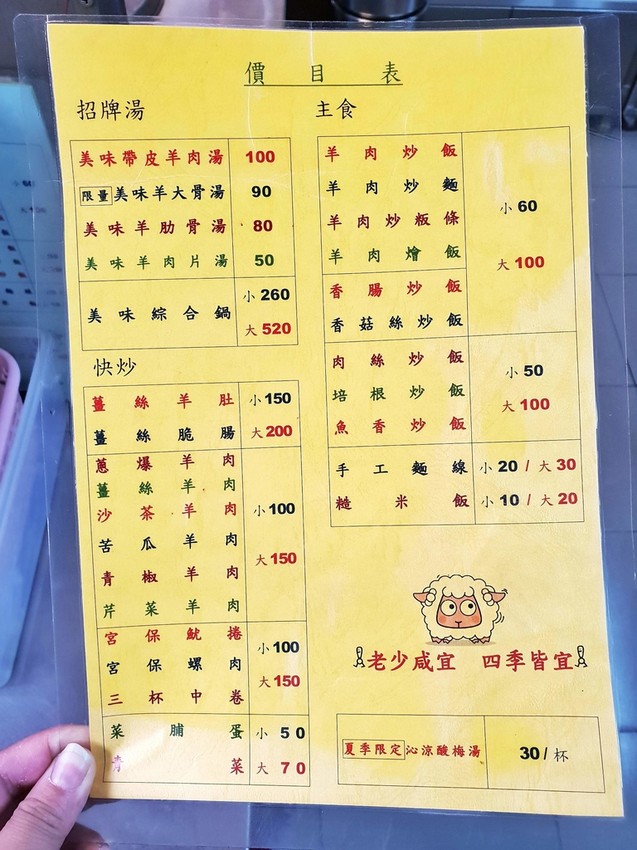 價目表
招牌湯
美味帶皮羊肉湯 100
限量 美味羊大骨湯 90
美味羊肋骨湯 80
美味羊肉片湯 50
美味綜合鍋 小 260 大 520
快炒
薑絲羊肚 小 150
薑絲脆腸 大 200
蔥爆羊肉
薑絲羊肉
沙茶羊肉 小 100
苦瓜羊肉
青椒羊肉 大 150
芹菜羊肉
宮保魷捲 小 100
宮保螺肉
三杯中卷 大 150
菜脯蛋 小 50
青菜 大 70
主食
羊肉炒飯
羊肉炒麵 小 60
羊肉炒粄條
羊肉燴飯 大 100
香腸炒飯
香菇絲炒飯
肉絲炒飯 小 50
培根炒飯
魚香炒飯 大 100
手工麵線 小 20 / 大 30
糙米飯 小 10 / 大 20
老少咸宜 四季皆宜
夏季限定 沁涼酸梅湯 30 / 杯